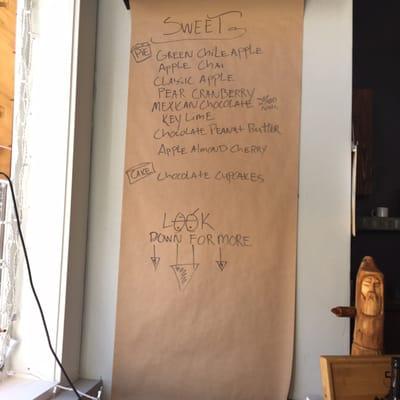 SWEETS
PIE GREEN CHILE APPLE
APPLE CHAI
CLASSIC APPLE
PEAR CRANBERRY
MEXICAN CHOCOLATE
KEY LIME
CHOCOLATE PEANUT BUTTER
APPLE ALMOND CHERRY
CAKE CHOCOLATE CUPCAKES
LOOK
DOWN FOR MORE